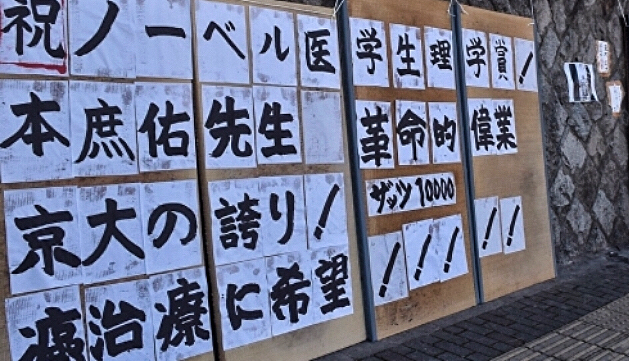 祝ノーベル医学生理学賞!
本庶佑先生 革命的偉業
京大の誇り! ザッツ10000
癌治療に希望 !!!!!